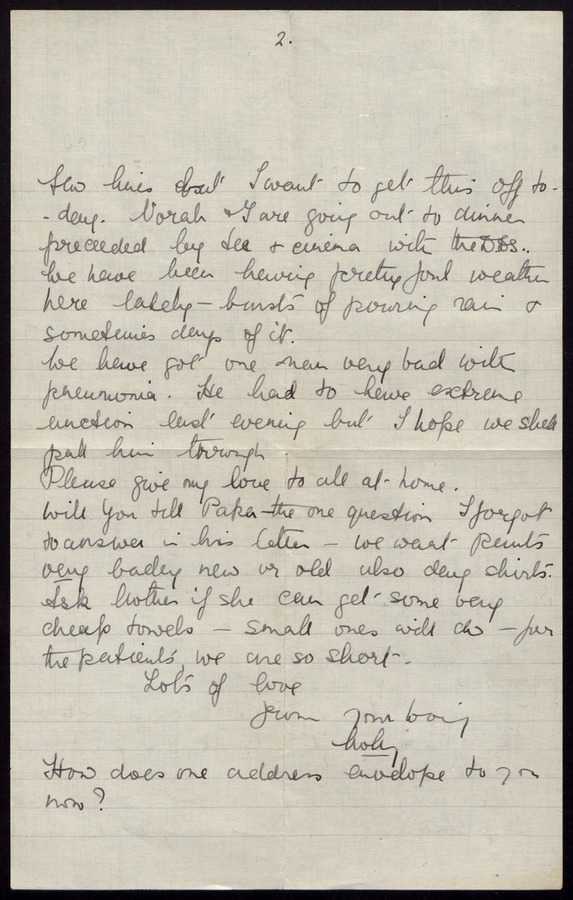 2.
few lines about I want to get this off to-
-day. Norah & I are going out to dinner
preceeded by tea & cinema with the
We have been having pretty foul weather
here lately – bursts of pouring rain &
sometimes days of it.
We have got one man very bad with
pneumonia. He had to have extreme
unction last evening but I hope we shall
pull him through.
Please give my love to all at home.
Will you tell Papa the one question I forgot
to answer in his letter – we want
very badly new or old also day shirts.
Ask Mother if she can get some very
cheap towels – small ones will do – for
the patients, we are so short.
Lots of love
from your loving
How does one address envelope to you
now?